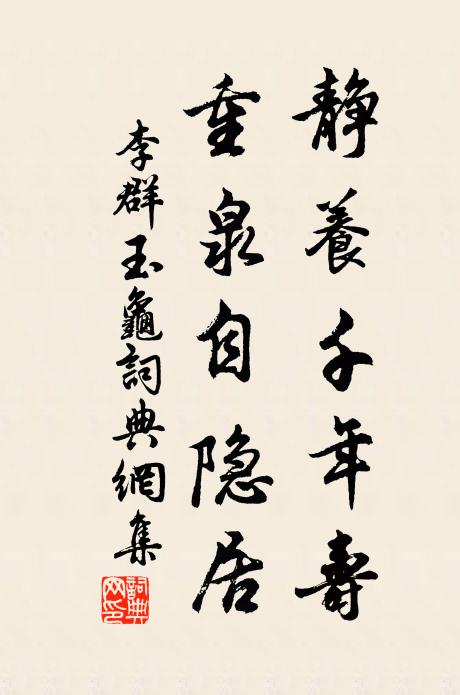 靜養千年壽
重泉自隐居
李群玉龜詞典網集
詞典
网印